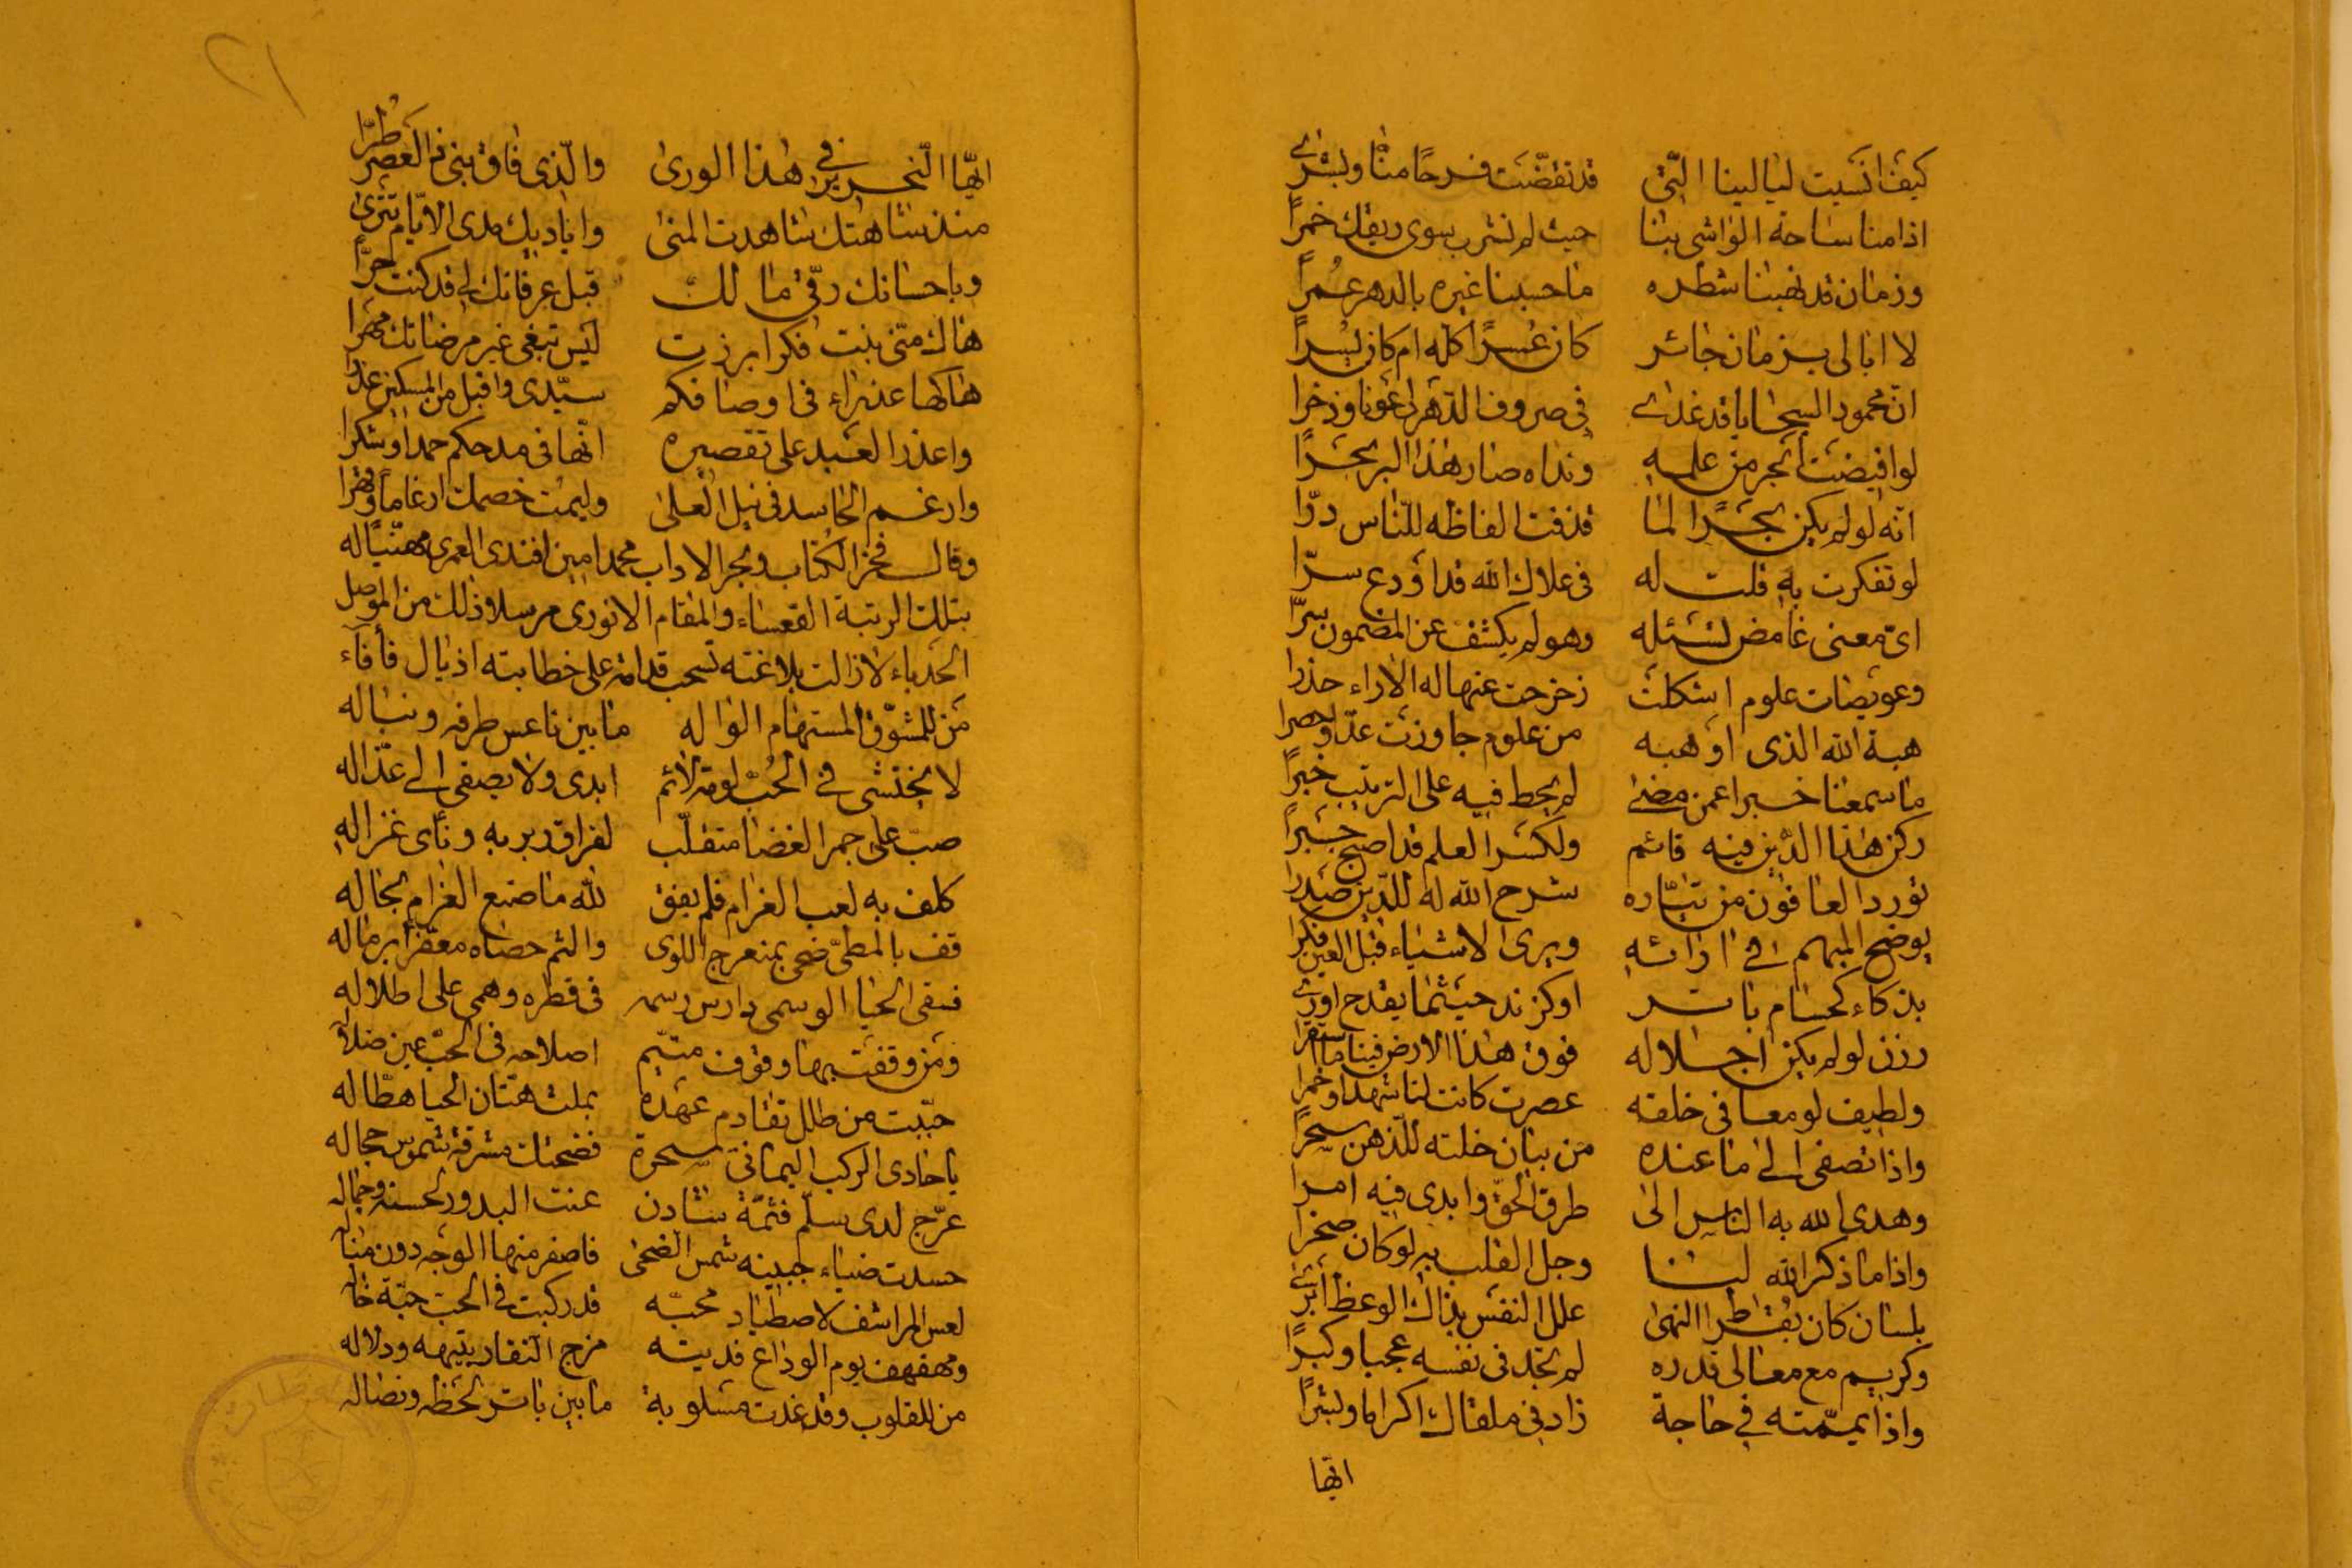 كيف انسيت ليالينا التي قد تقضّت فرحًا منّا وبشرى
اذ امنا ساحة الواشي بنا حيث لم نشرب سوى ريقك خمرًا
وزمان قد نهبنا شطره ما حسبنا غيره بالدهر عُمرًا
لا ابالي بزمان جائر كان عُسرًا كله ام كان يُسرًا
انّ محمود السجايا قد غدا لي في صروف الدّهر عونا وذخرا
لو افيضت ابحر من علمه ونداه صار هذا البر بحَرًا
انّه لو لم يكن بحَرًا لما قذفت الفاظه للنّاس درّا
لو تفكرت به قلت له في علاك الله قد اودع سرّا
ايّ معنى غامض لنسئله وهو لم يكشف عن المضمون سرّا
وعويصات علوم اشكلت زحزحت عنها له الاراء حذرا
هبة الله الذي اوهبه من علوم جاوزت عدّا وحصرا
ما سمعنا خبرا عمن مضى لم يحط فيه على الترتيب خبرًا
ركن هذا الدّين فيه قائم ولكسر العلم قد اصبح جبَرًا
تورد العافون من تيّاره شرح الله له للدّين صَدرا
يوضح المبهم في ارائه ويرى الاشياء قبل العين فكرا
بذكاء كحسام باتر او كزند حيثما يقدح اورى
رزن لو لم يكن اجلاله فوق هذا الارض فينا ما استقرا
ولطيف لو معا في خلقه عصرت كانت لنا شهدا وخمرا
واذا تصغي الى ما عنده من بيان خلته للذّهن سحرًا
وهدى الله به الناس الى طرق الحقّ وابدى فيه امرا
واذا ما ذكر الله لنا وجل القلب به لو كان صخرا
بلسان كان يُقراطر النهى علل النفس بذاك الوعظ ابرى
وكريم مع معالي قدره لم تجد في نفسه عجبا وكبرًا
واذا يمّمته في حاجة زاد في ملقاك اكراما وبشرًا
ايّها
٢١
ايّها النّحرير في هذا الورى والّذي فاق بني ذا العَصر طُرّا
منذ شاهتك شاهدت المنى واياديك مدى الايّام تترى
وباحسانك رقّي مالك قبل عرفانك لي قد كنت حرّا
هاك منّي بنت فكر ابرزت ليس تبغي غير مرضاتك مهرا
هاكها عذراء في اوصافكم سيّدي واقبل من المسكين عذرا
واعذر العبد على تقصيره انّها في مدحكم حمدا وشكرا
وارغم الحاسد في نيل العلى وليمت خصمك ارغاماً وقهرا
وقال فخر الكتاب وبحر الاداب محمد امين افندي العمري مهنّيًا له
بتلك الرتبة القعساء والمقام الانوري مرسلا ذلك من الموصل
الحدباء لازالت بلاغته تسحب قدامة على خطابته اذيال فأفاء
من للمشوّق المستهام الواله ما بين ناعس طرفه ونباله
لا يختشي في الحُبّ لومة لائم ابدى ولا يصغي الى عذّاله
صبّ على جمر الغضا متقلّب لفراق ربربه ونأى غزاله
كلف به لعب الغرام فلم يفق لله ما صنع الغرام بحاله
قف بالمطيّ ضحى بمنعرج اللوى والثم حصاه معفّرا برماله
فسقى الحيا الوسمي دارس رسمه في قطره وهمى على اطلاله
ومن وقفت بها وقوف متيّم اصلاحه في الحبّ عين ضلاله
حيّيت من طلل تقادم عهده بملث هتّان الحيا هطّاله
يا حادي الركب اليماني سحرة فضحتك مشرقة شموس حجاله
عرّج لدى سلم فثمّة شادن عنت البدور لحسنه وجماله
حسدت ضياء جبينه شمس الضحى فاصفر منها الوجه دون مناله
لعس المراشف لاصطياد محبّه قد ركبت في الحبّ حبّة خاله
ومهفهف يوم الوداع فديته مزج النفار بتيهه ودلاله
من للقلوب وقد غدت مسلوبة ما بين باتر لحظه ونصاله